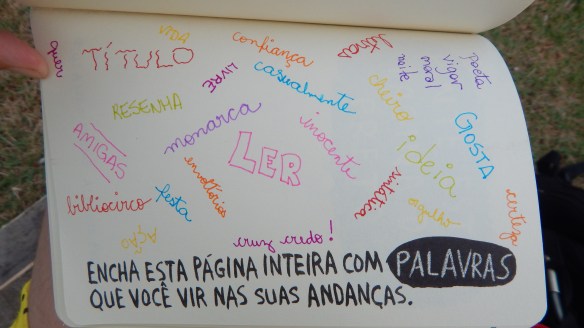 quer
TÍTULO
VIDA
confiança
LIVRE
casualmente
poeta
vigor
mural
noite
cheiro
RESENHA
monarca
inocente
GOSTA
AMIGAS
LER
ideia
envoltórios
bibliocirco
festa
sintática
orgulho
certeza
AÇÃO
cruz credo!
ENCHA ESTA PÁGINA INTEIRA COM PALAVRAS
QUE VOCÊ VIR NAS SUAS ANDANÇAS.